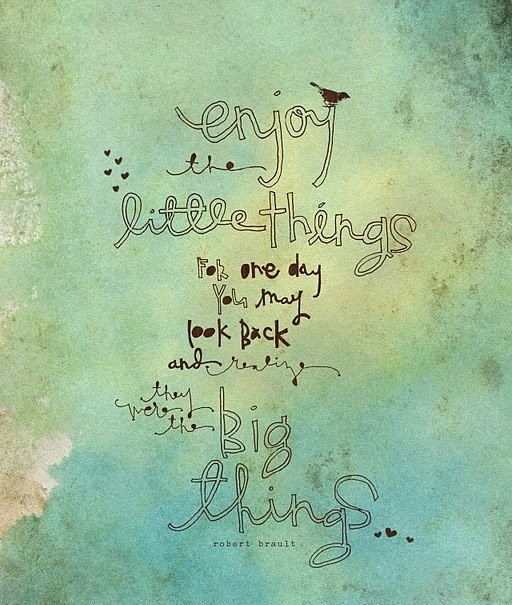 enjoy
the
little things
For one day
You may
look Back
and realize
they
were
the
Big
things
robert brault